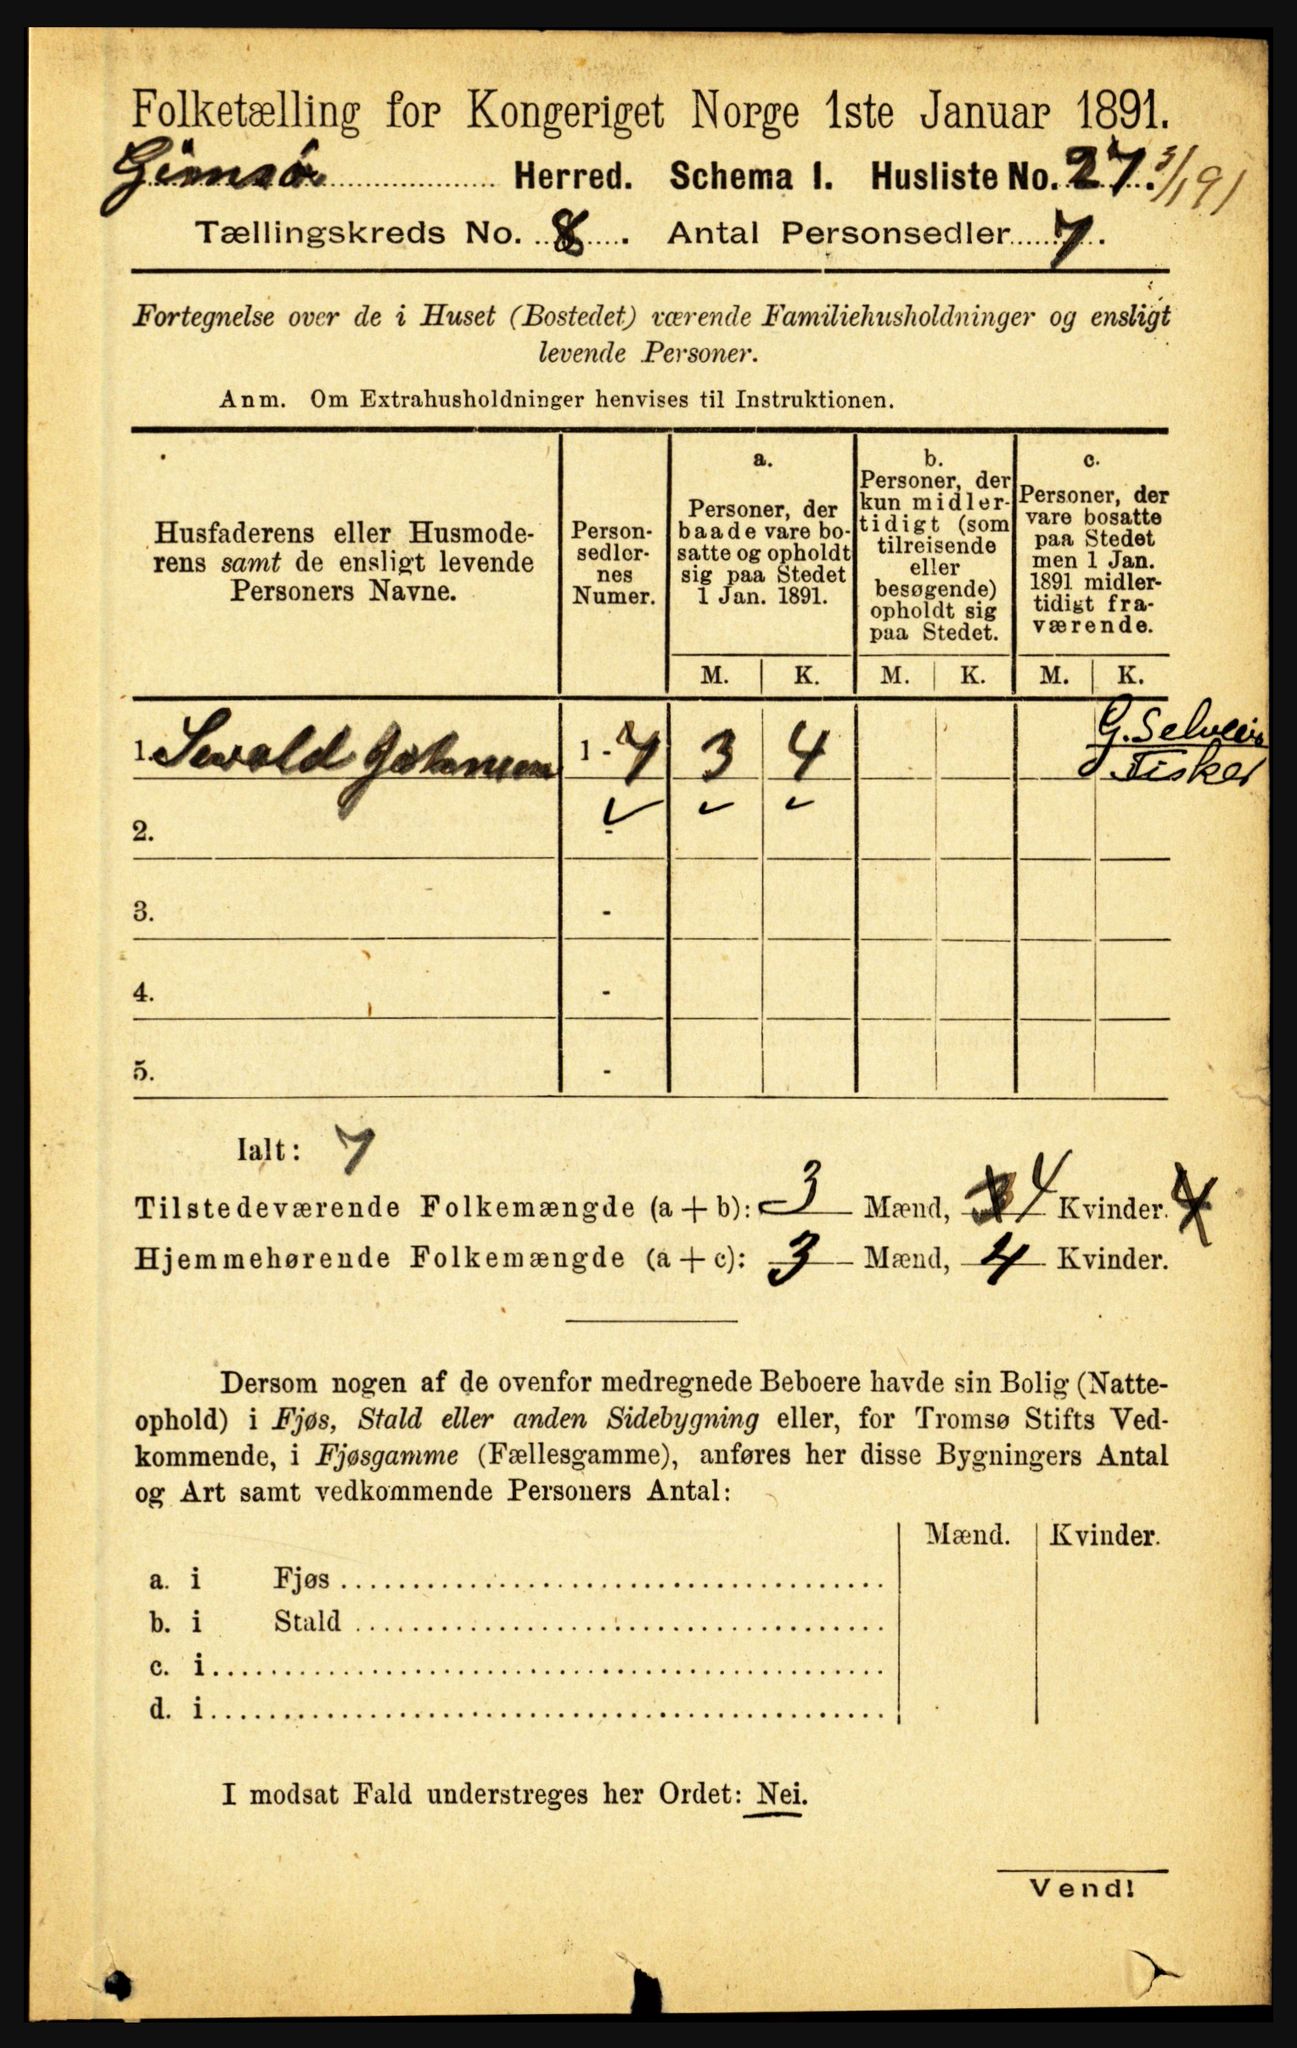 Folketælling for Kongeriget Norge 1ste Januar 1891.
Gimsø Herred. Schema I. Husliste No. 27. 3/1 91
Tællingskreds No. 8. Antal Personsedler 7.
Fortegnelse over de i Huset (Bostedet) værende Familiehusholdninger og ensligt
levende Personer.
Anm. Om Extrahusholdninger henvises til Instruktionen.
Husfaderens eller Husmode-
rens samt de ensligt levende
Personers Navne.
Person-
sedler-
nes
Numer.
a.
Personer, der
baade vare bo-
satte og opholdt
sig paa Stedet
1 Jan. 1891.
b.
Personer, der
kun midler-
tidigt (som
tilreisende
eller
besøgende)
opholdt sig
paa Stedet.
c.
Personer, der
vare bosatte
paa Stedet
men 1 Jan.
1891 midler-
tidigt fra-
værende.
M. K. M. K. M. K.
1. Sevald Johnsen 1 - 7 3 4 G. Selveier
Fisker
2. -
3. -
4. -
5. -
Ialt: 7
Tilstedeværende Folkemængde (a + b): 3 Mænd, 4 Kvinder. 4
Hjemmehørende Folkemængde (a + c): 3 Mænd, 4 Kvinder.
Dersom nogen af de ovenfor medregnede Beboere havde sin Bolig (Natte-
ophold) i Fjøs, Stald eller anden Sidebygning eller, for Tromsø Stifts Ved-
kommende, i Fjøsgamme (Fællesgamme), anføres her disse Bygningers Antal
og Art samt vedkommende Personers Antal:
Mænd. Kvinder.
a. i Fjøs
b. i Stald
c. i
d. i
I modsat Fald understreges her Ordet: Nei.
Vend!